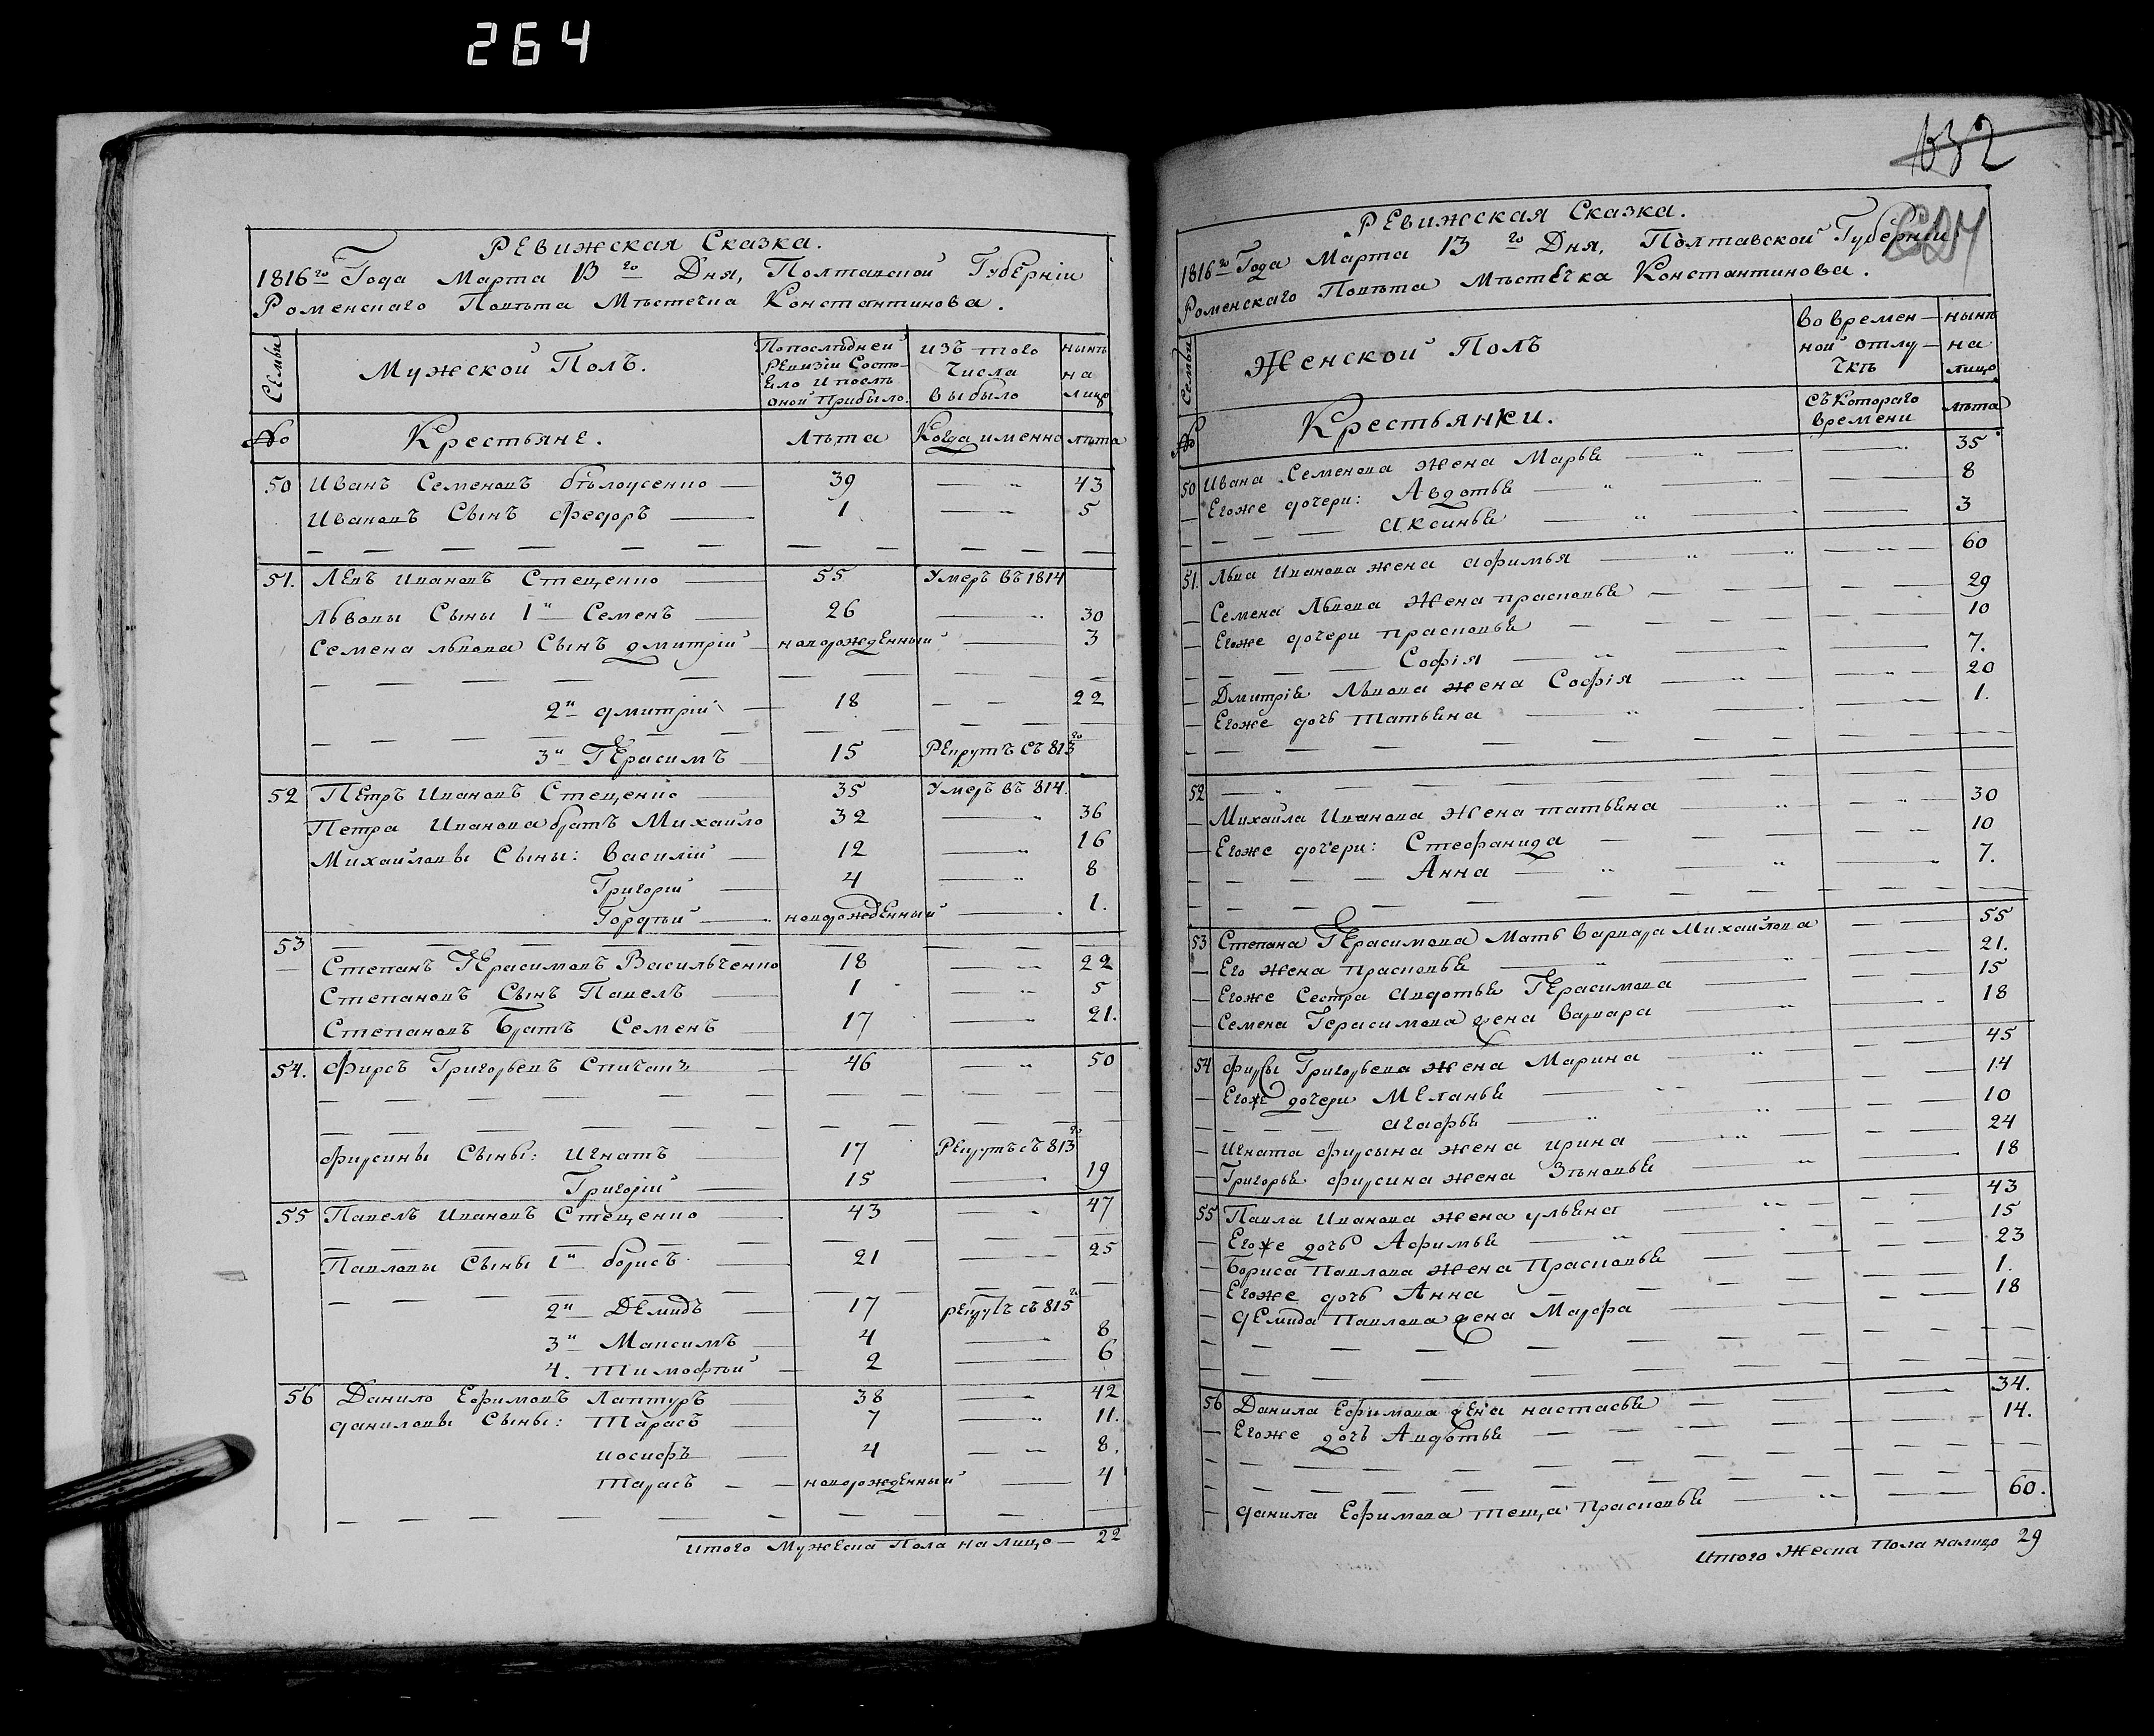 264
Ревижская Сказка.
1816го Года Марта 13го Дня, Полтавской Губерніи
Роменскаго Повѣта Мѣстечка Константинова.
Семьи
Мужской Полъ.
По послѣдней Ревизіи Состо-
яло и послѣ оной прибыло.
изъ того Числа выбыло
нынѣ на лицо
№ Крестьяне. лѣта Когда именно лѣта
50 Иванъ Семеновъ бѣлоусенко 39 43
Ивановъ Сынъ Федоръ 1 5
51. Левъ Ивановъ Стещенко 55 Умеръ въ 1814
Львовы Сыны 1й Семенъ 26 30
Семена львова Сынъ дмитрій новорожденный 3
2й дмитрій 18 22
3й Герасимъ 15 Рекрутъ съ 813го
52 Петръ Ивановъ Стещенко 35 Умеръ въ 814.
Петра Иванова братъ Михайло 32 36
Михайловы Сыны: Василій 12 16
Григорій 4 8
Гордѣй новорожденный 1.
53
Степанъ Герасимовъ Васильченко 18 22
Степановъ Сынъ Павелъ 1 5
Степановъ Братъ Семенъ 17 21.
54. Фирсъ Григорьевъ 46 50
Фирсины Сыны: Игнатъ 17 Рекрутъ съ 813го
Григорій 15 19
55 Павелъ Ивановъ Стещенко 43 47
Павловы Сыны 1й борисъ 21 25
2й Демидъ 17 рекрутъ съ 815го
3й Максимъ 4 8
4. Тимофѣй 2 6
56 Данило Ефимовъ Лаптуръ 38 42
даниловы Сыны: Тарасъ 7 11.
иосифъ 4 8.
Тарасъ новорожденный 4
итого Мужеска Пола налицо 22
132
Ревижская Сказка.
1816го Года Марта 13го Дня, Полтавской Губерніи
Роменскаго Повѣта Мѣстечка Константинова.
Семьи
Женской Полъ
во времен-
ной отлу-
чкѣ
нынѣ на лицо
№ Крестьянки. съ Котораго времени лѣта
50 Ивана Семенова жена Марья 35
Егоже дочери: Авдотья 8
Аксинья 3
51. Льва Иванова жена Афимья 60
Семена Львова жена прасковья 29
Егоже дочери прасковья 10
Софія 7.
Дмитрія Львова жена Софія 20
Егоже дочь Татьяна 1.
52
Михайла Иванова жена татьяна 30
Егоже дочери: Стефанида 10
Анна 7.
53 Степана Герасимова Мать Варвара Михайлова 55
Его жена прасковья 21.
Егоже Сестра Авдотья Герасимова 15
Семена Герасимова жена Варвара 18
54 Фирсы Григорьева жена Марина 45
Егоже дочери Меланья 14
Агафья 10
Игната фирсына жена ирина 24
Григорья фирсина жена Зѣновья 18
55 Павла Иванова жена ульяна 43
Егоже дочь Афимья 15
Бориса Павлова жена Прасковья 23
Егоже дочь Анна 1.
демида Павлова жена Марфа 18
56 Данила Ефимова жена настасья 34.
Егоже дочь Авдотья 14.
данила Ефимова теща Прасковья 60.
Итого Жеска Пола налицо 29